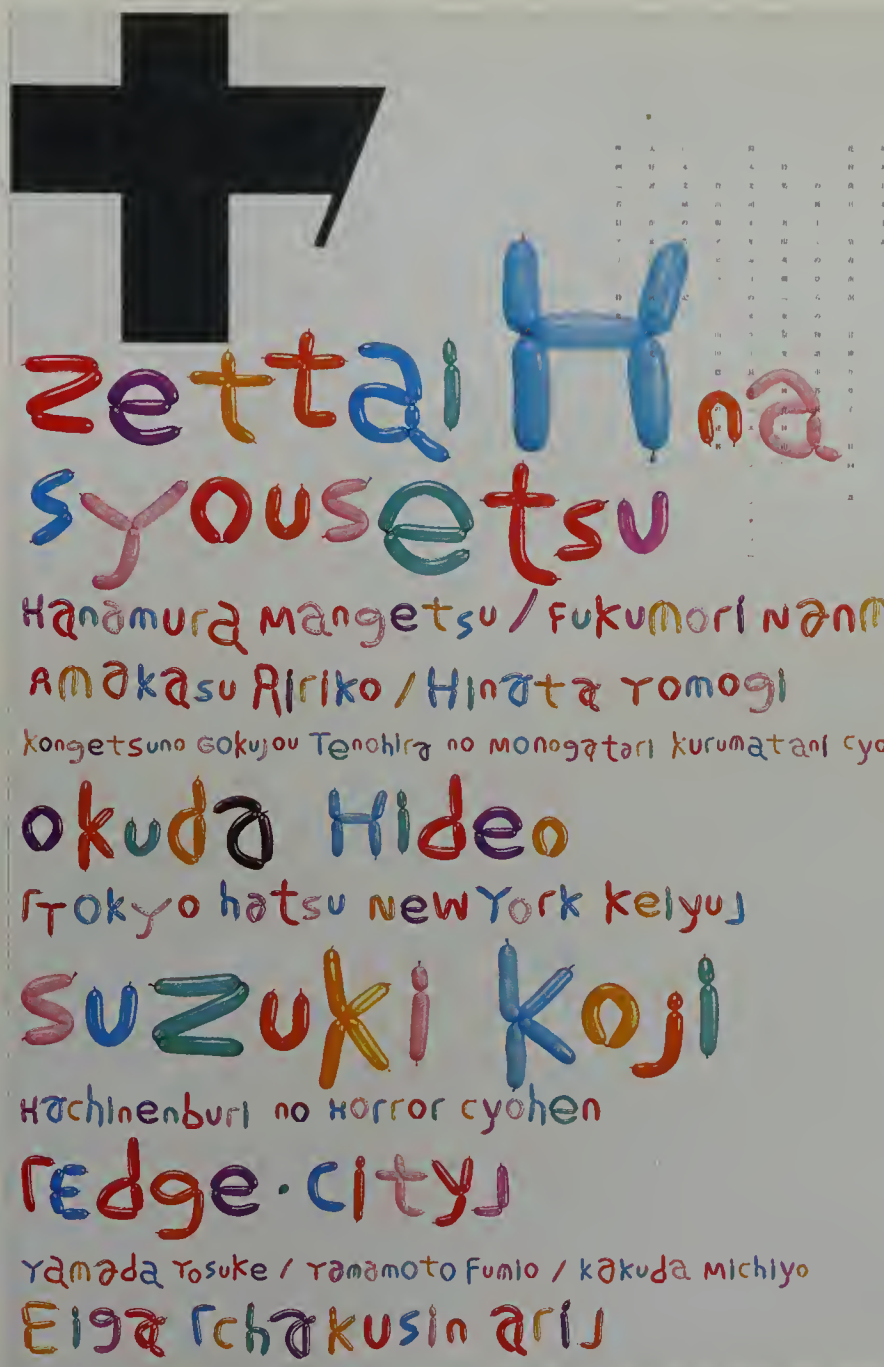 zettai H na
syousetsu
Hanamura Mangetsu / Fukumori Nanm
Amakasu Ririko / Hinata Yomogi
kongetsuno Gokujou Tenohira no Monogatari kurumatani cyo
okuda Hideo
「Tokyo hatsu New York keiyu」
suzuki koji
Hachinenburi no Horror cyohen
「Edge・city」
Yamada Yosuke / Yamamoto Fumio / kakuda Michiyo
Eiga 「chakusin ari」